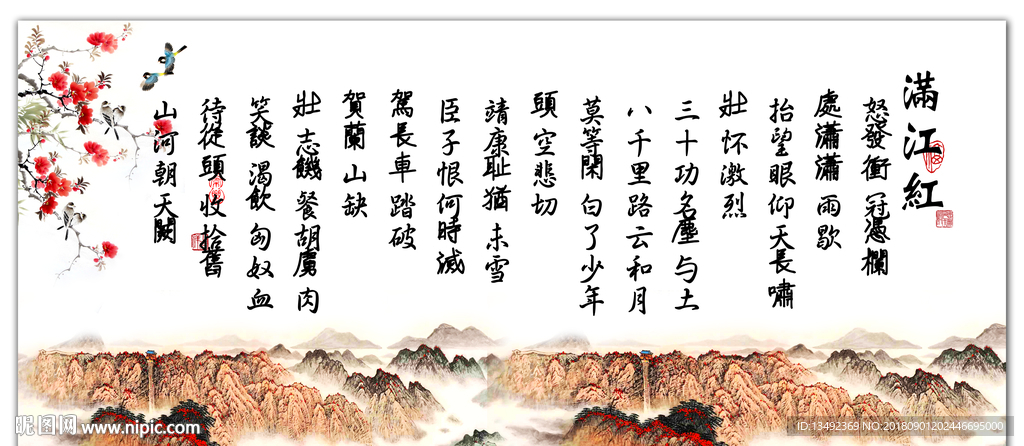 滿江紅
怒發衝冠憑欄
處瀟瀟雨歇
抬望眼仰天長嘯
壯怀激烈
三十功名塵与土
八千里路云和月
莫等閑白了少年
頭空悲切
靖康耻猶未雪
臣子恨何時滅
駕長車踏破
賀蘭山缺
壯志饑餐胡虜肉
笑談渴飲匈奴血
待從頭收拾舊
山河朝天闕
昵图网 www.nipic.com
ID:13492369 NO:20180901202446695000